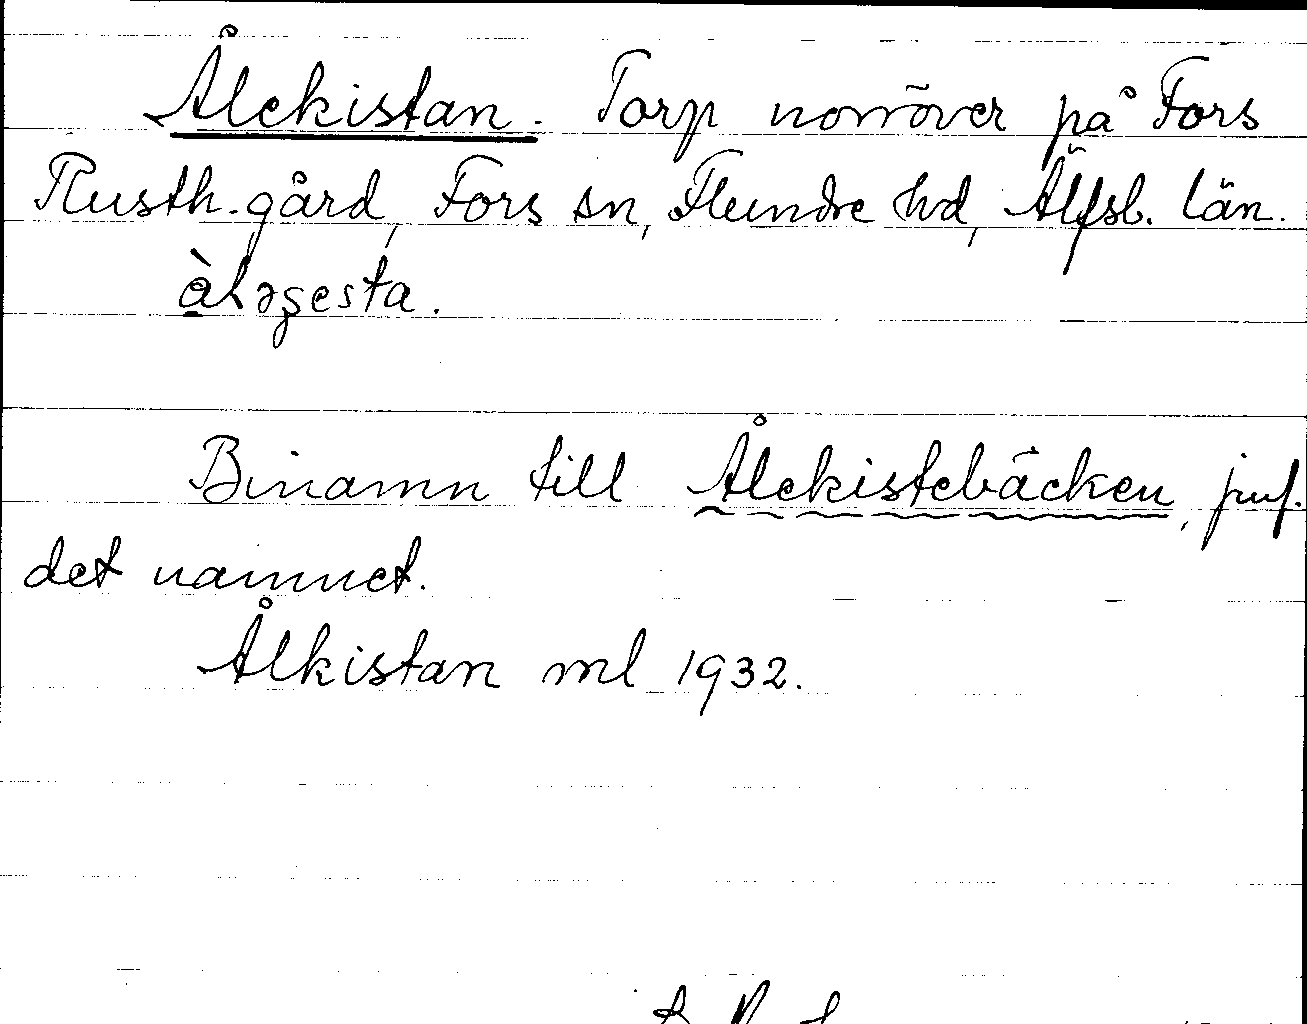 Ålekistan. Torp norröver på Fors
Rusth. gård, Fors sn, Flundre hd, Älfsb. län.
Binamn till Ålekistebäcken, jmf.
det namnet.
Ålkistan ml 1932.